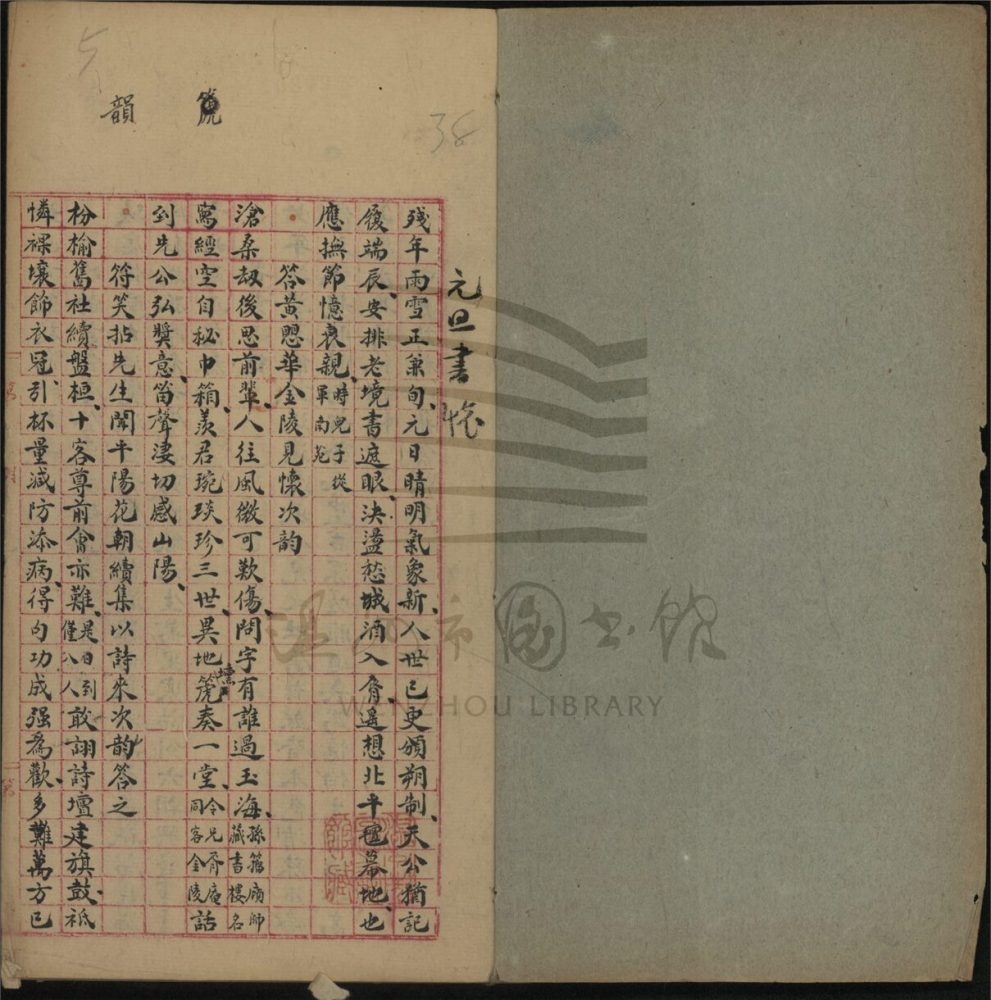 元旦書懷
殘年雨雪正兼旬、元日晴明氣象新、人世已更頒朔制、天公猶記
復端辰、安排老境書遮眼、決盪愁城酒入脣、遙想北平氊幕地、也
應撫節憶衰親、時兒子從軍南苑
答黃愳華金陵見懷次韵
滄桑刼後思前輩、人往風微可歎傷、問字有誰過玉海、孫籀廎師藏書樓名
寫經空自秘巾箱、羨君琬琰珍三世、異地壎箎奏一堂、令兄胥庵同客金陵話
到先公弘獎意、笛聲淒切感山陽、
符笑拈先生聞平陽花朝續集以詩來次韵答之
枌榆舊社續盤桓、十客尊前會亦難、是日到僅八人敢詡詩壇建旗鼓、祗
憐裸壤飾衣冠、引杯量減防添病、得句功成强爲歡、多難萬方已
箎
韻
38
温州市圖書館
WENZHOU LIBRARY